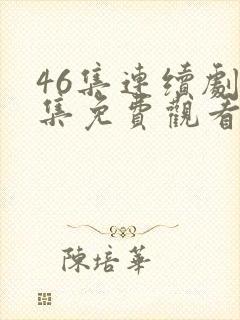 46集連續劇
集免費觀看
陳培華